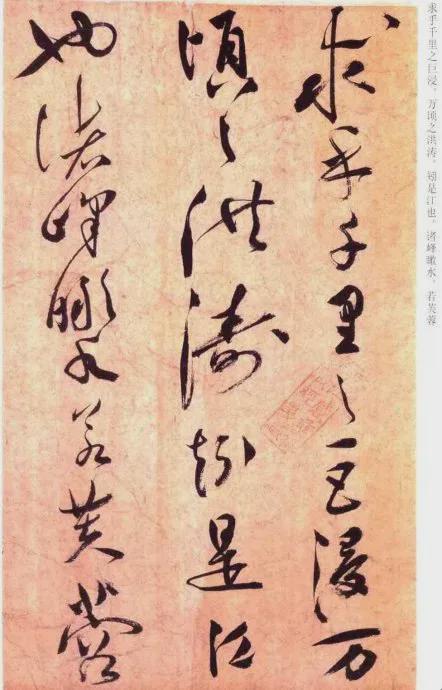 求乎千里之巨浸，万顷之洪涛。矧是江也，诸峰瞰水，若芙蓉
求乎千里之巨浸万
頃之洪濤矧是江
也諸峰瞰水若芙蓉